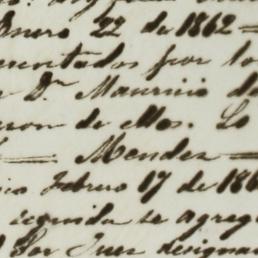 Enero 22 de 1862 =
sentados por lo
Dn Mauricio de
ron de ellos. Lo
= Mendez =
Febrero 17 de 186
se agreg
Sor Juez designa